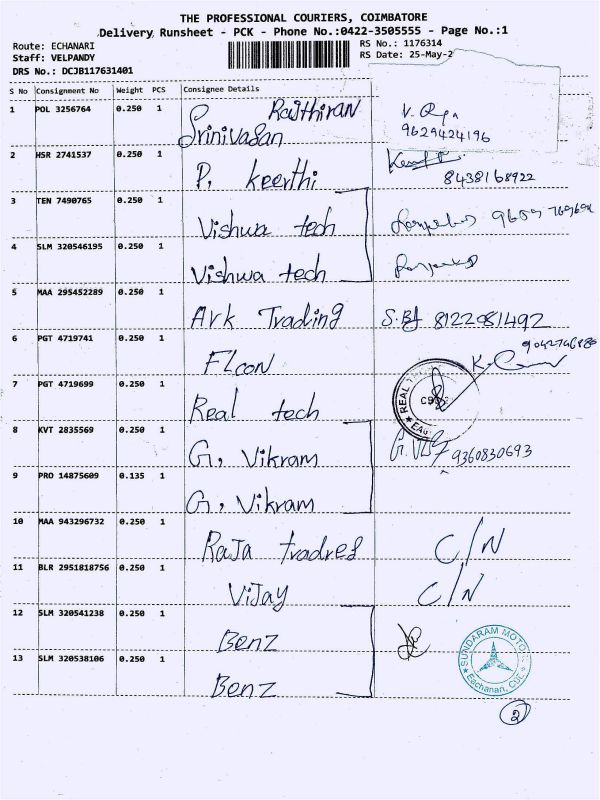 THE PROFESSIONAL COURIERS, COIMBATORE
Delivery Runsheet - PCK - Phone No.:0422-3505555 - Page No.:1
Route: ECHANARI
RS No.: 1176314
Staff: VELPANDY
RS Date: 25-May-2
DRS No.: DCJB117631401
S No Consignment No Weight PCS Consignee Details
1 POL 3256764 0.250 1 Rajthiran Srinivasan 9629424196
2 HSR 2741537 0.250 1 P. keerthi 8438168922
3 TEN 7490765 0.250 1 Vishwa tech
4 SLM 320546195 0.250 1 Vishwa tech
5 MAA 295452289 0.250 1 Ark Trading 8122081492
6 PGT 4719741 0.250 1 Flcon
7 PGT 4719699 0.250 1 Real tech
8 KVT 2835569 0.250 1 G. Vikram 9360830693
9 PRO 14875609 0.135 1 G. Vikram
10 MAA 943296732 0.250 1 Raja tradres C/N
11 BLR 2951818756 0.250 1 Vijay C/N
12 SLM 320541238 0.250 1 Benz
SUNDARAM MOTO
13 SLM 320538106 0.250 1 Benz
Eachanari, CBE
2